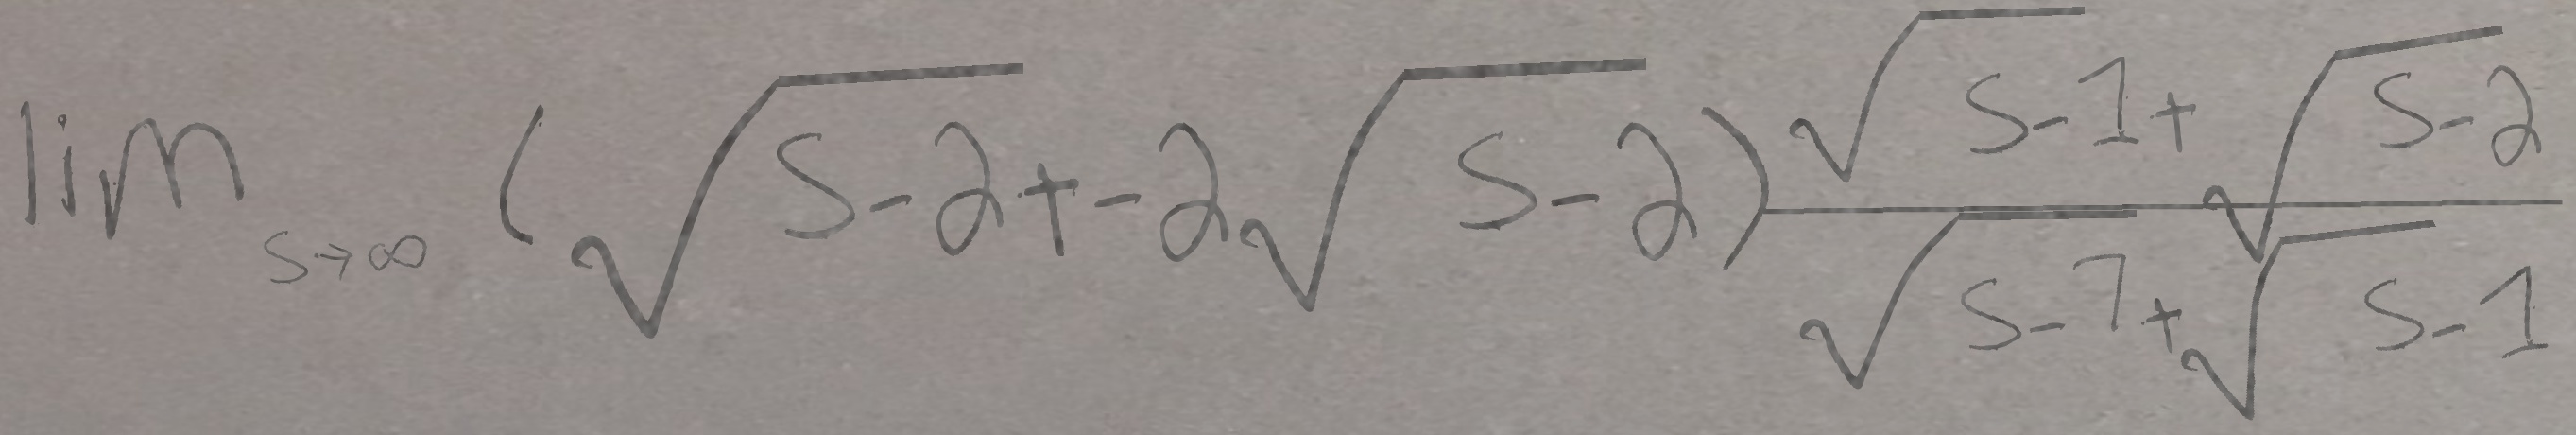 \lim_{s \to \infty} \left( \sqrt{s-2} + -2\sqrt{s-2} \right) \frac{\sqrt{s-1} + \sqrt{s-2}}{\sqrt{s-7} + \sqrt{s-1}}